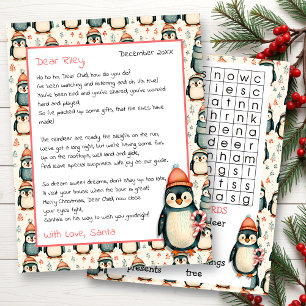 Dear Riley
December 20XX
Ho ho ho, Dear Child, how do you do?
I've been watching and listening and oh, it's true!
You've been kind and you've shared, you've worked
hard and played,
So I've packed up some gifts, that the elves have
made!
The reindeer are ready, the sleigh's on the run,
We've got a long night, but we're having some fun.
Up on the rooftops, we'll land and glide,
And leave special surprises with joy as our guide.
So dream sweet dreams, don't stay up too late,
I'll visit your house when the hour is great!
Merry Christmas, Dear Child, now close
your eyes tight,
Santa's on his way to wish you goodnight!
With love, Santa
nowc
lesc
atnk
hink
pena
deer
nham
ingl
stss
asg
RDS
deer
ngs
presents
tree